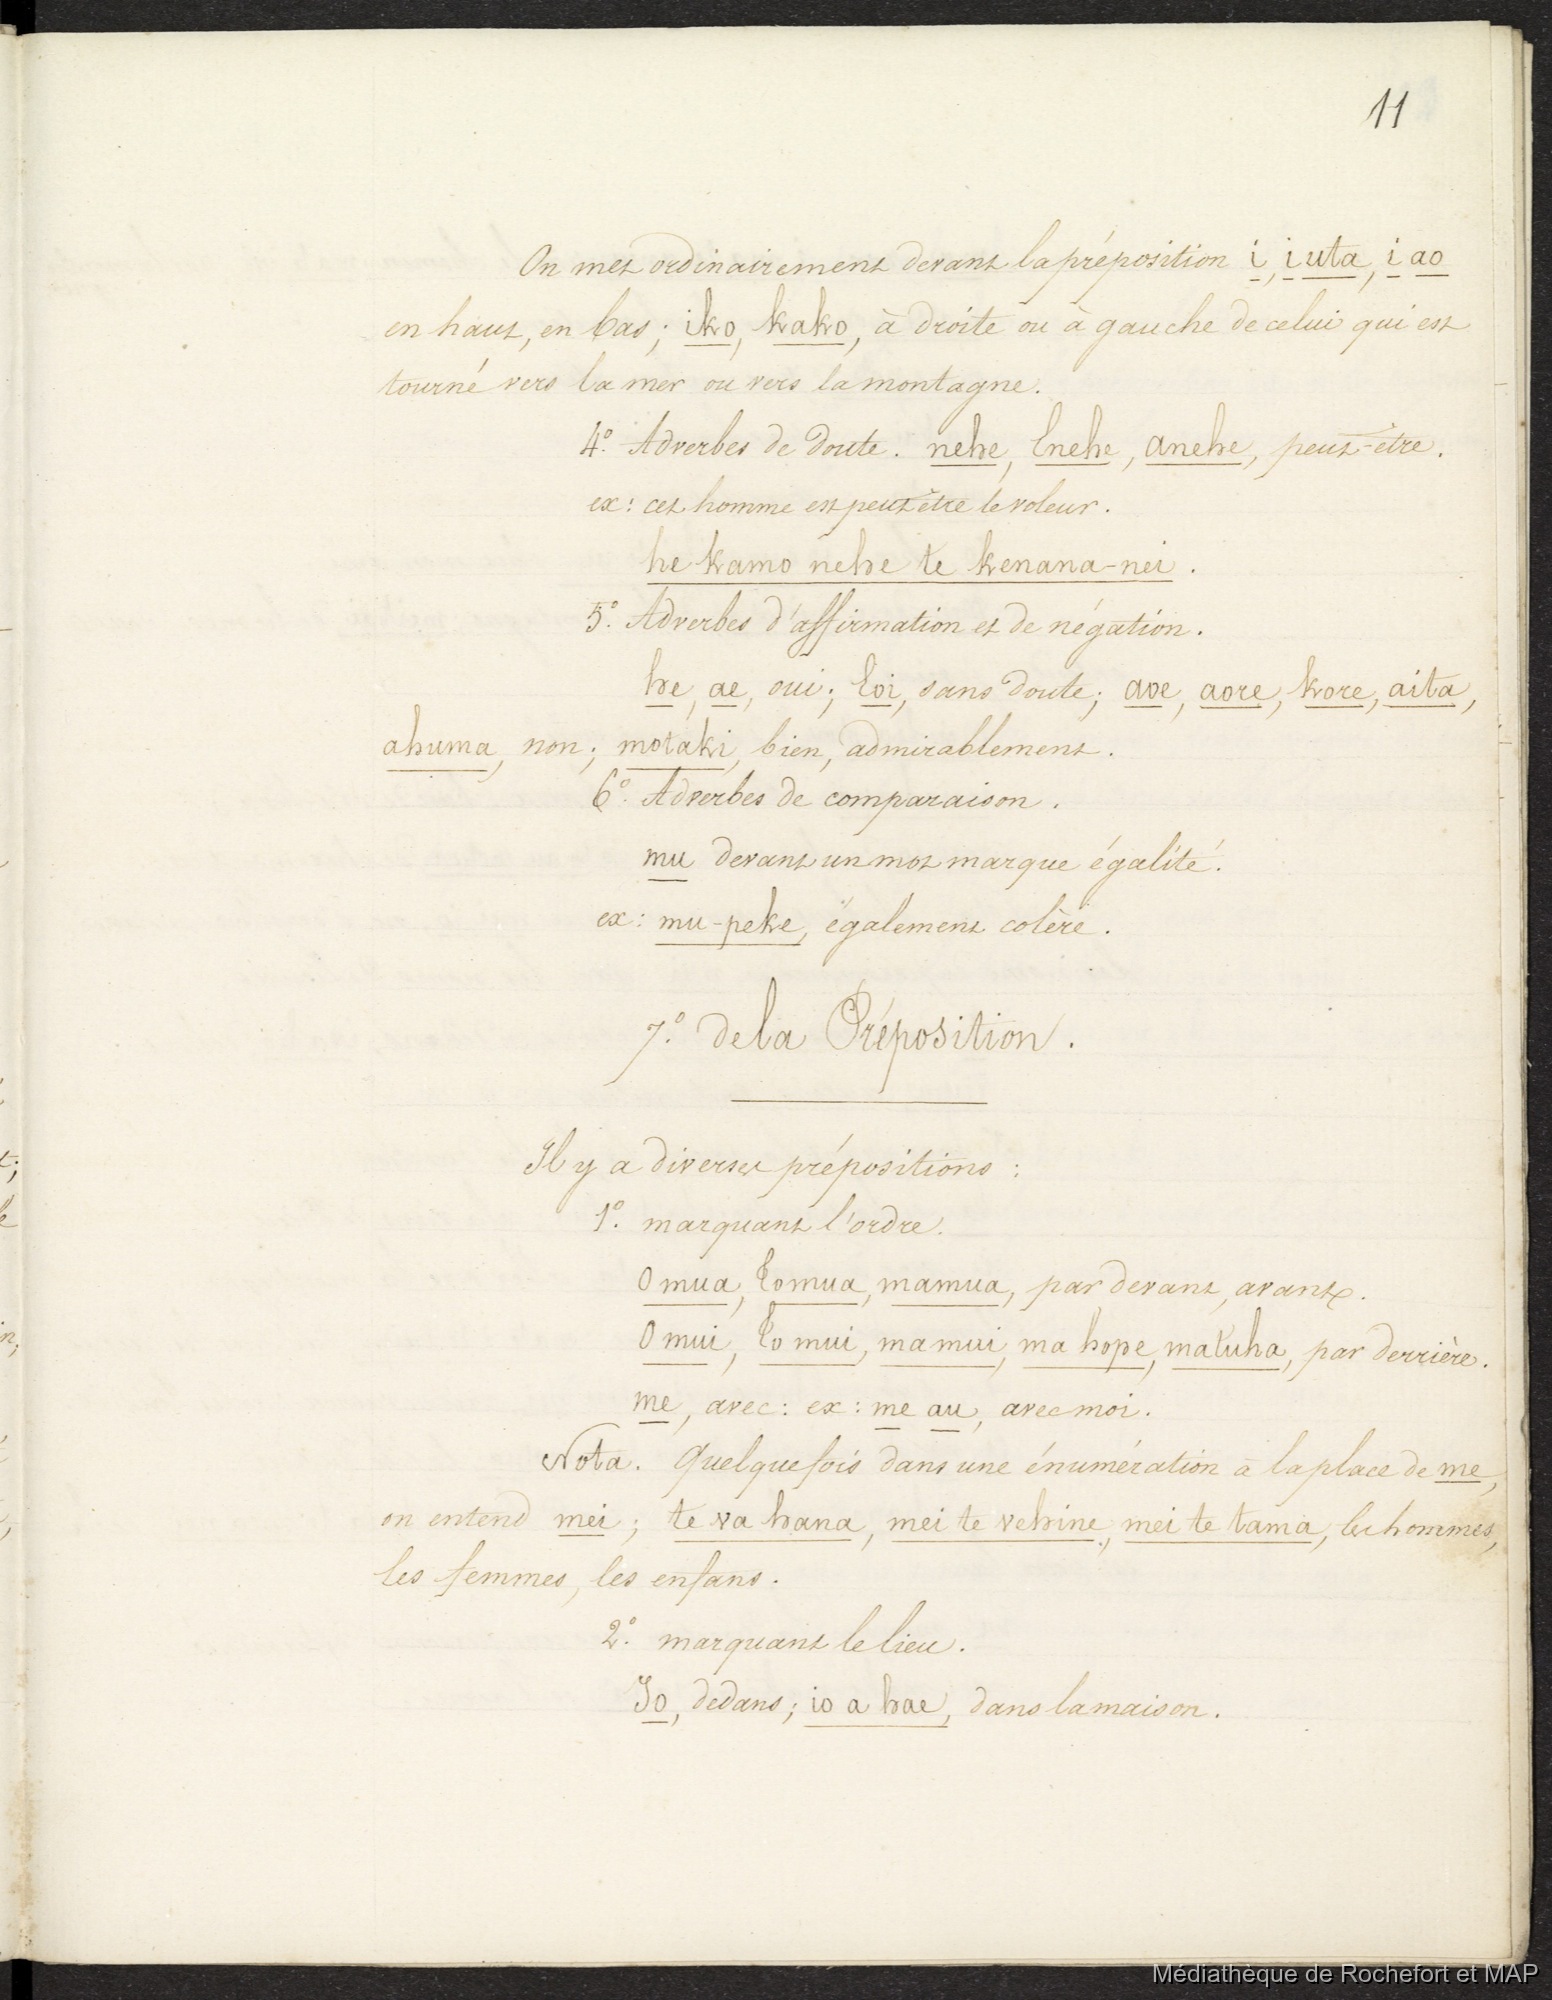 11
On met ordinairement devant la préposition i, i uta, i ao
en haut, en bas; iko, kako, à droite ou à gauche de celui qui est
tourné vers la mer ou vers la montagne.
4° Adverbes de doute. nehe, Enehe, anehe, peut-être.
ex: cet homme est peut être le voleur.
he kamo nehe te kenana-nei.
5° Adverbes d'affirmation et de négation.
he, ae, oui; Eoi, sans doute; aoe, aore, kore, aita,
ahuma, non; motaki, bien, admirablement.
6° Adverbes de comparaison.
mu devant un mot marque égalité.
ex: mu-peke, également colère.
7° de la Préposition.
Il y a diverses prépositions:
1° marquant l'ordre.
O mua, Eomua, mamua, par devant, avant.
O mui, Eo mui, ma mui, ma hope, matuha, par derrière.
me, avec: ex: me au, avec moi.
Nota. Quelquefois dans une énumération à la place de me,
on entend mei; te va hana, mei te vehine, mei te tama, les hommes,
les femmes, les enfans.
2° marquant le lieu.
Io, dedans; io a hae, dans la maison.
Médiathèque de Rochefort et MAP